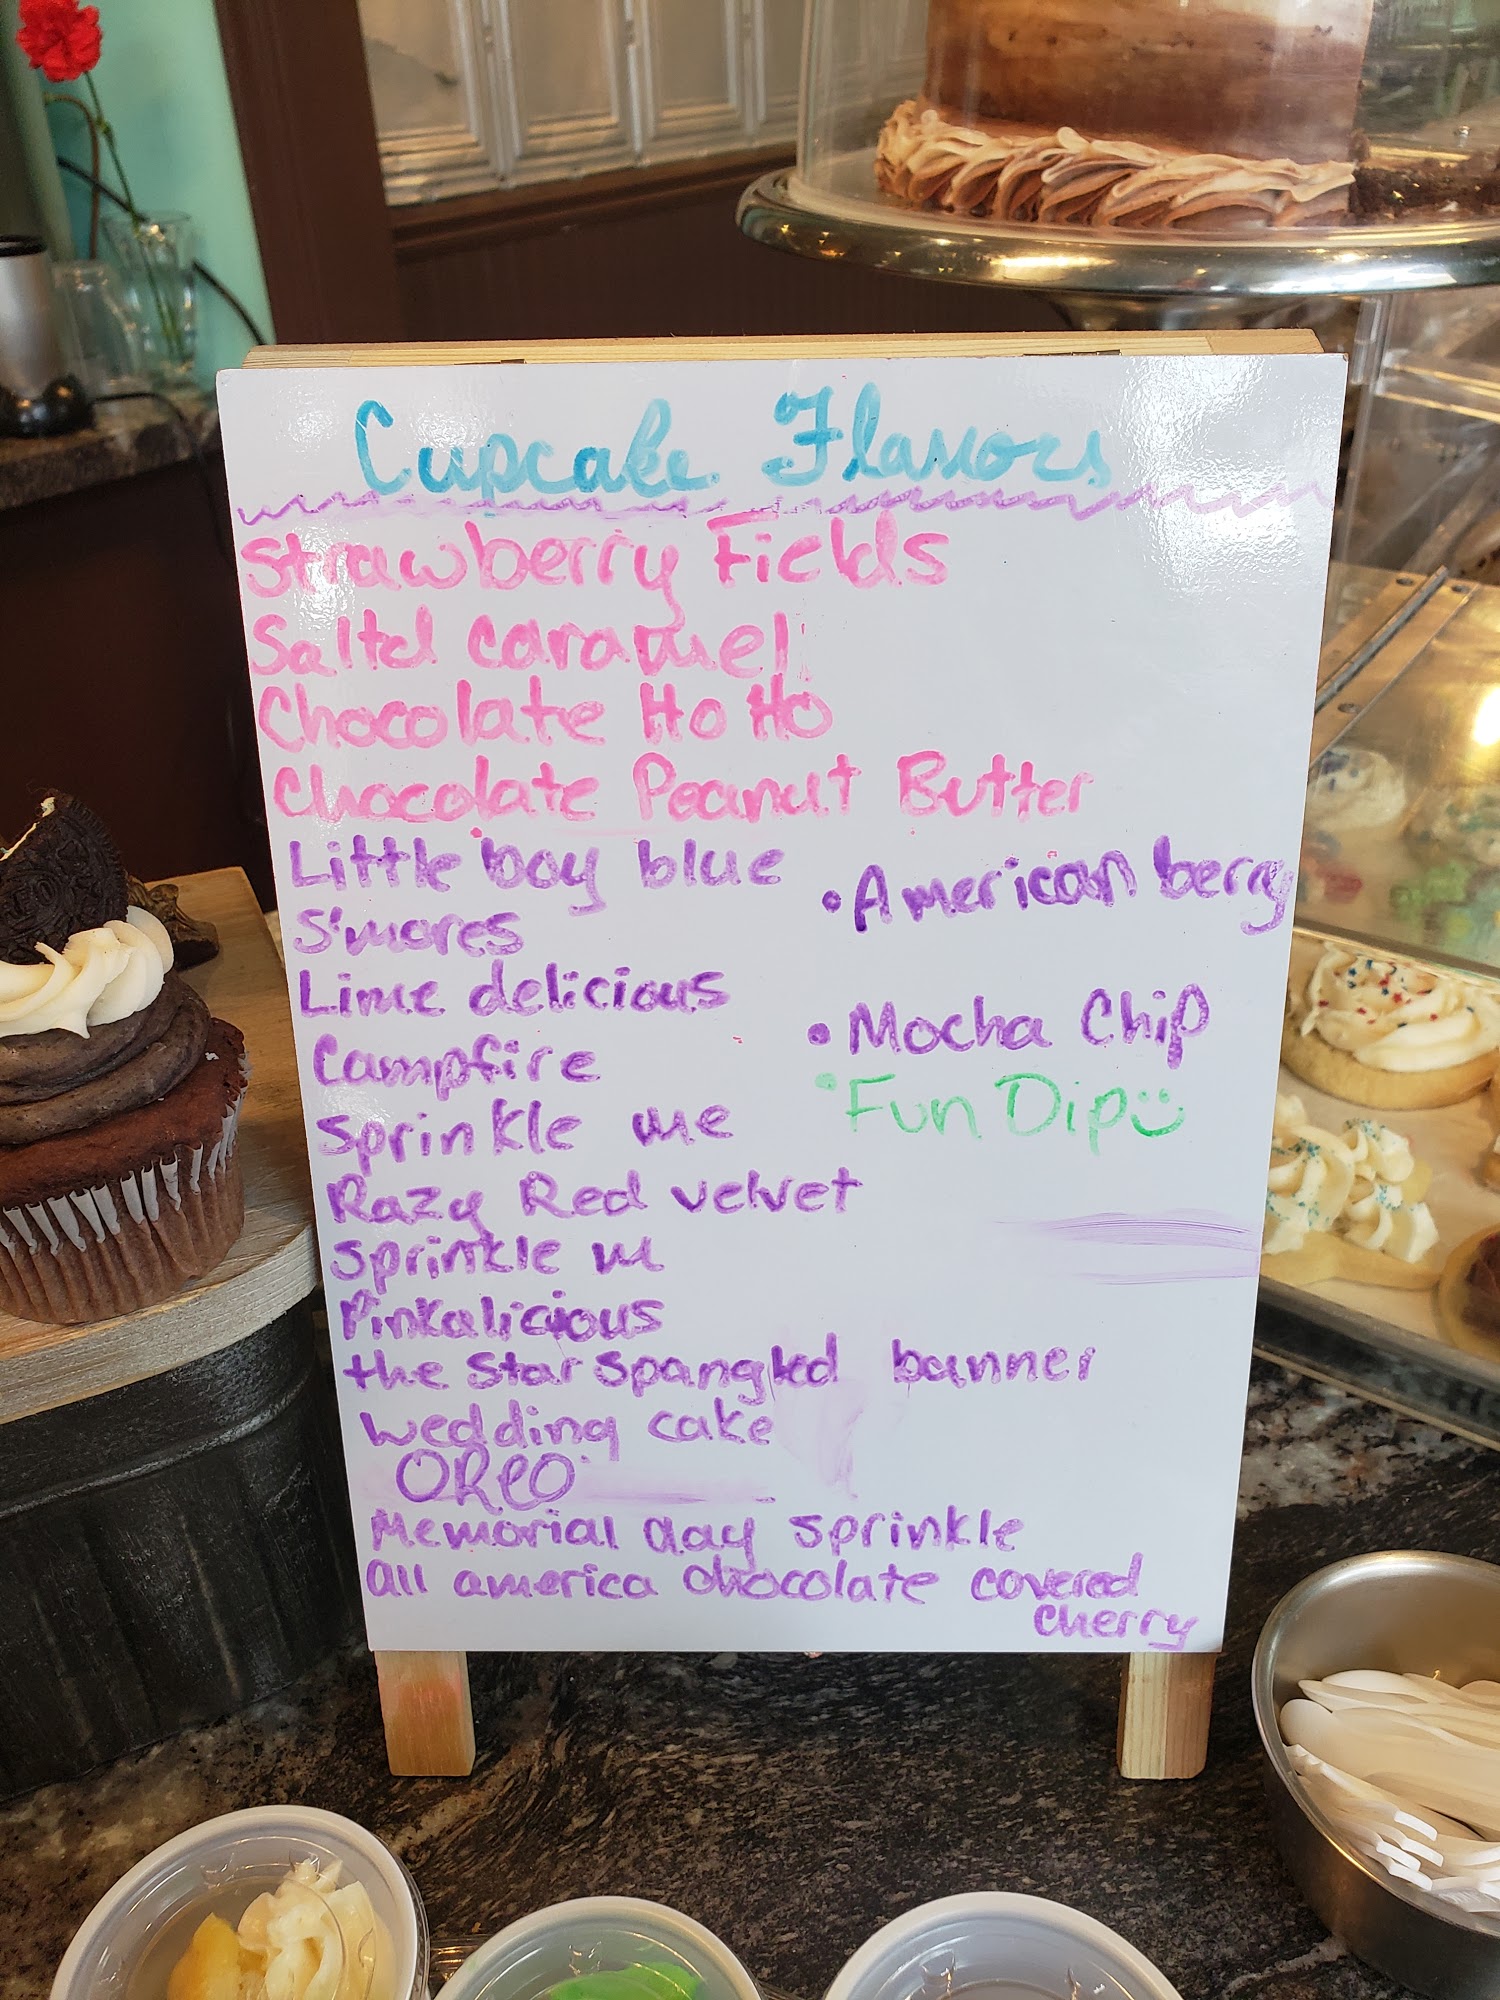 Cupcake Flavors
Strawberry Fields
Saltd caramel
Chocolate Ho Ho
Chocolate Peanut Butter
Little boy blue
S'mores
Lime delicious
Campfire
Sprinkle me
Razy Red velvet
Sprinkle m
Pinkalicious
the star spangled banner
wedding cake
OReo
Memorial day sprinkle
all america chocolate covered
cherry
•American berry
•Mocha Chip
•Fun Dip